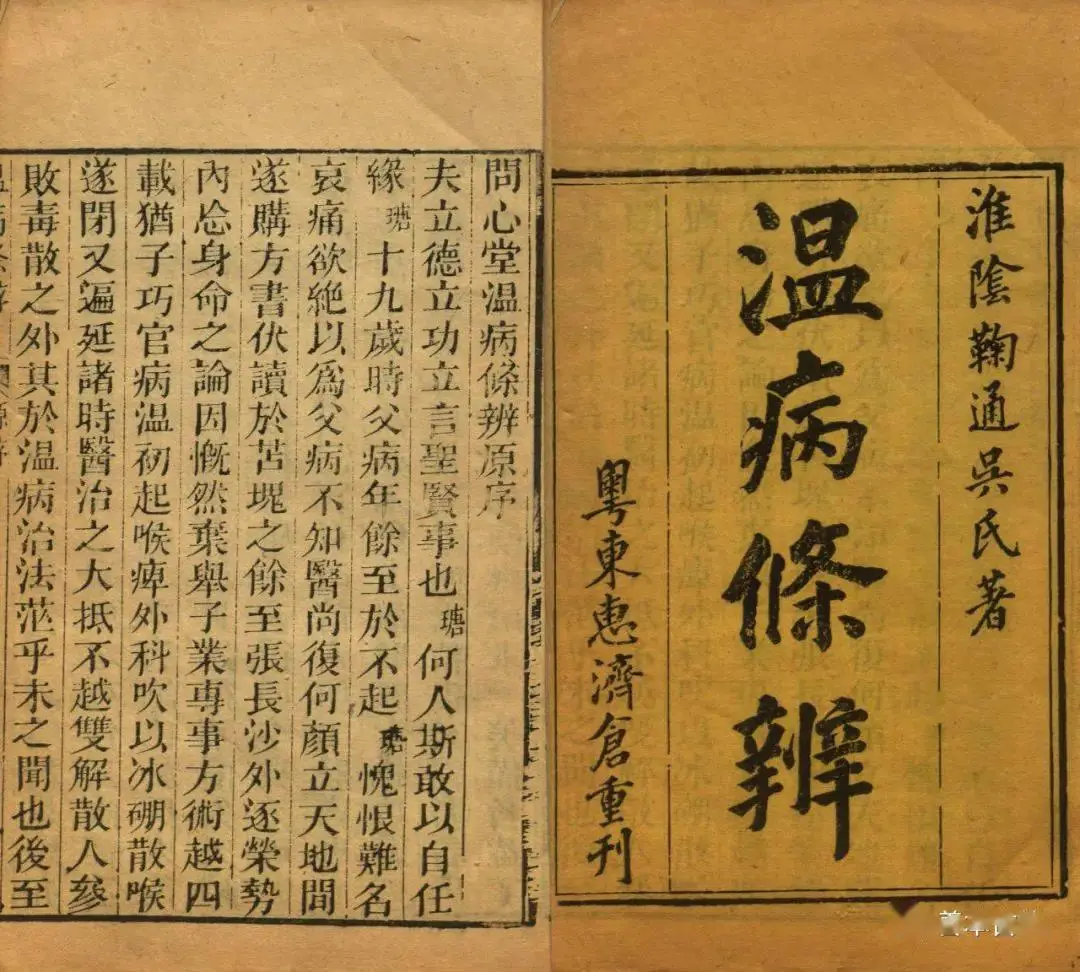 淮陰鞠通吳氏著
温病條辨
粵東惠濟倉重刊
問心堂溫病條辨原序
夫立德立功立言聖賢事也瑭何人斯敢以自任
緣瑭十九歲時父病年餘至於不起瑭愧恨難名
哀痛欲絕以爲父病不知醫尚復何顏立天地間
遂購方書伏讀於苫塊之餘至張長沙外逐榮勢
內忘身命之論因慨然棄舉子業專事方術越四
載猶子巧官病溫初起喉痺外科吹以冰硼散喉
遂閉又遍延諸時醫治之大抵不越雙解散人參
敗毒散之外其於溫病治法茫乎未之聞也後至